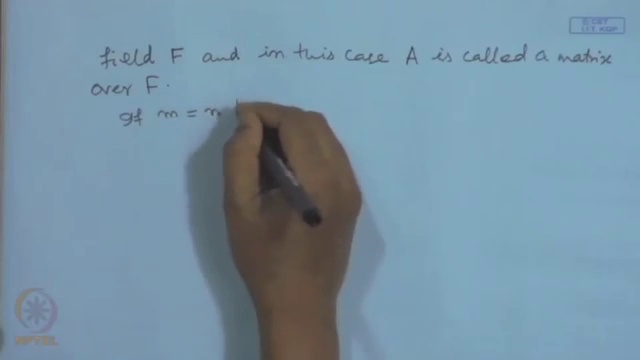 © CET
I.I.T. KGP
field F and in this case A is called a matrix
over F.
If m = n
NPTEL